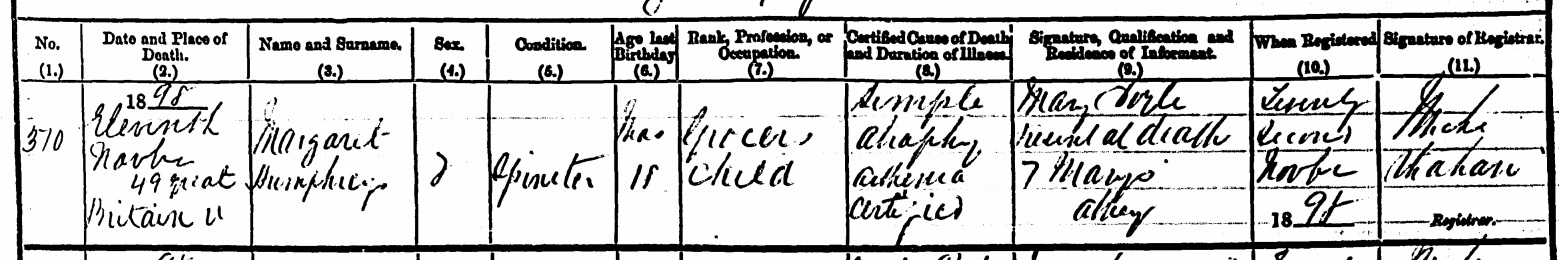 No. Date and Place of Death. Name and Surname. Sex. Condition. Age last Birthday Rank, Profession, or Occupation. Certified Cause of Death and Duration of Illness. Signature, Qualification and Residence of Informant. When Registered Signature of Registrar.
(1.) (2.) (3.) (4.) (5.) (6.) (7.) (8.) (9.) (10.) (11.)
1898 Simple Mary Doyle Twenty
Eleventh Margaret Mos Grocers atrophy death Second
Novbr Humphreys Spinster 18 Child asthenia 7 Mary's Novbr
49 great certified abbey 1898 Registrar.
Britain